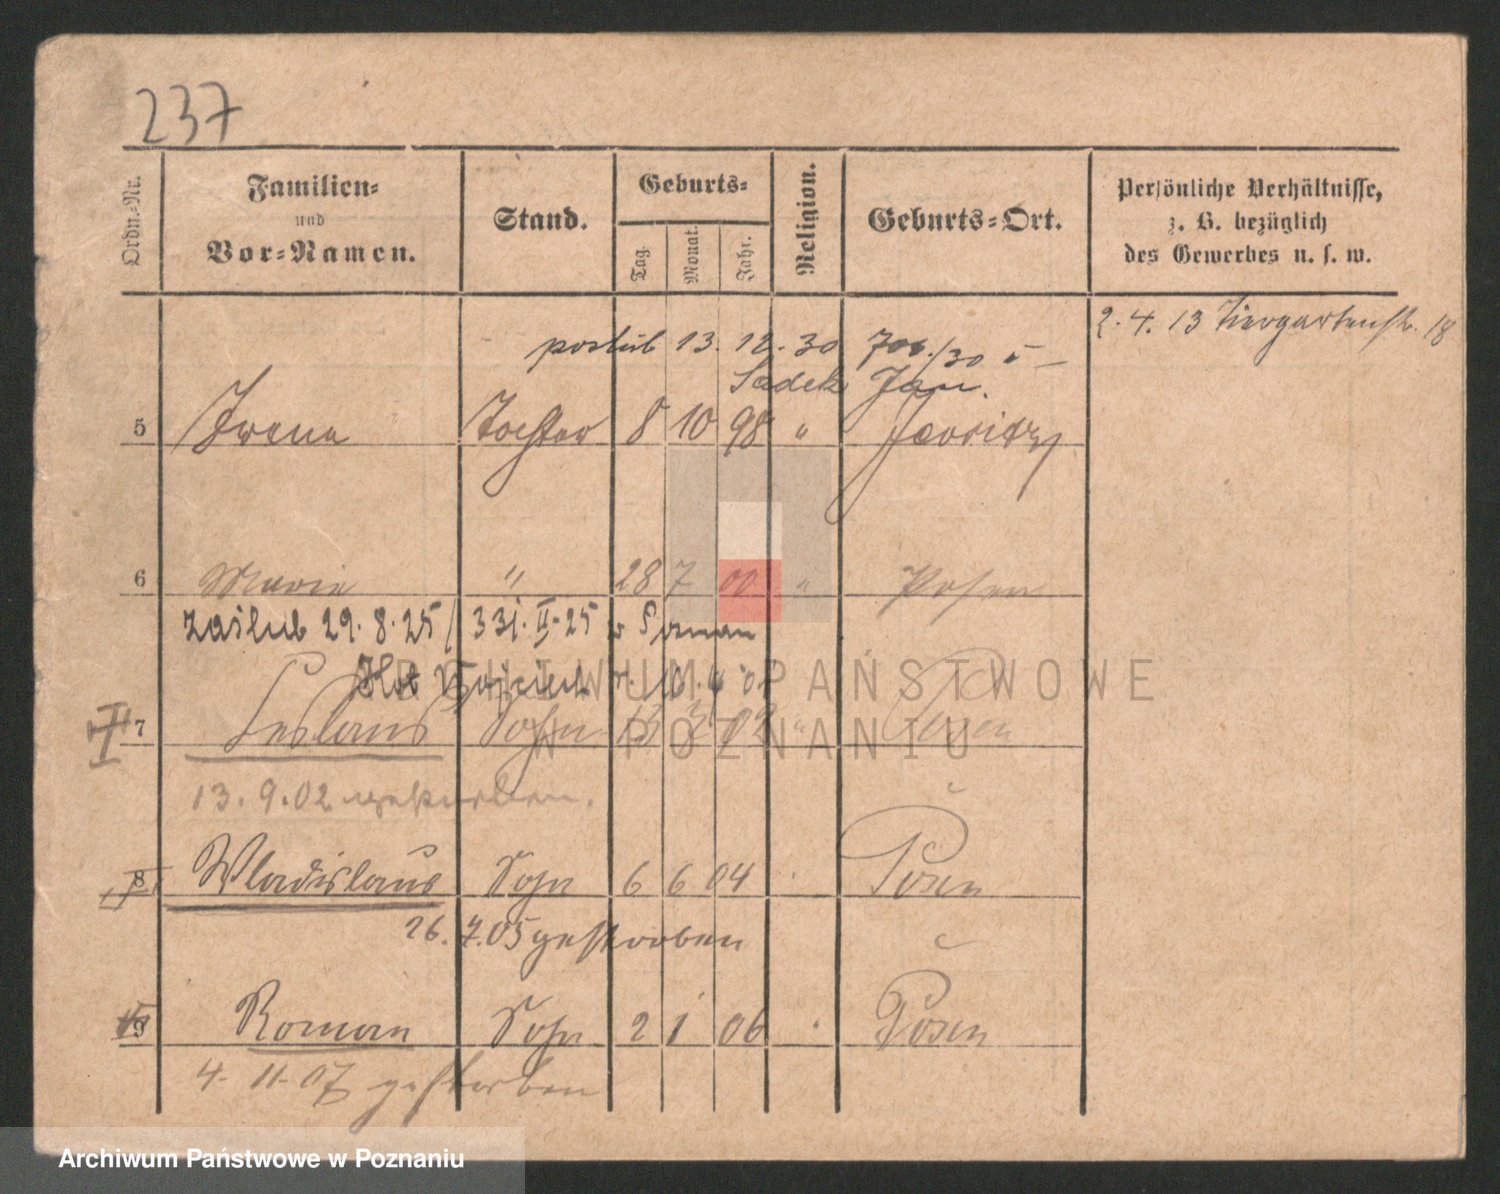 237
Ordn.-Nr.
Familien-
und
Vor-Namen.
Stand.
Geburts-
Tag.
Monat.
Jahr.
Religion.
Geburts-Ort.
Persönliche Verhältnisse,
z. B. bezüglich
des Gewerbes u. s. w.
2. 4. 13 Tiergartenstr. 18
poślub 13. 12. 30 706/30
Sadek Jan.
5 Irena Tochter 8 10 98 "
6 Marie " 28 7 00 " Posen
zaślub 29. 8. 25 / 331. II-25 w Poznan
ARCHIWUM PAŃSTWOWE
W POZNANIU
II 7 Leslaus Sohn 13 3 02 " Posen
13. 9. 02 gestorben.
8 Wladislaus Sohn 6 6 04 Posen
26. 7. 05 gestorben
9 Roman Sohn 2 1 06 Posen
4. 11. 07 gestorben
Archiwum Państwowe w Poznaniu